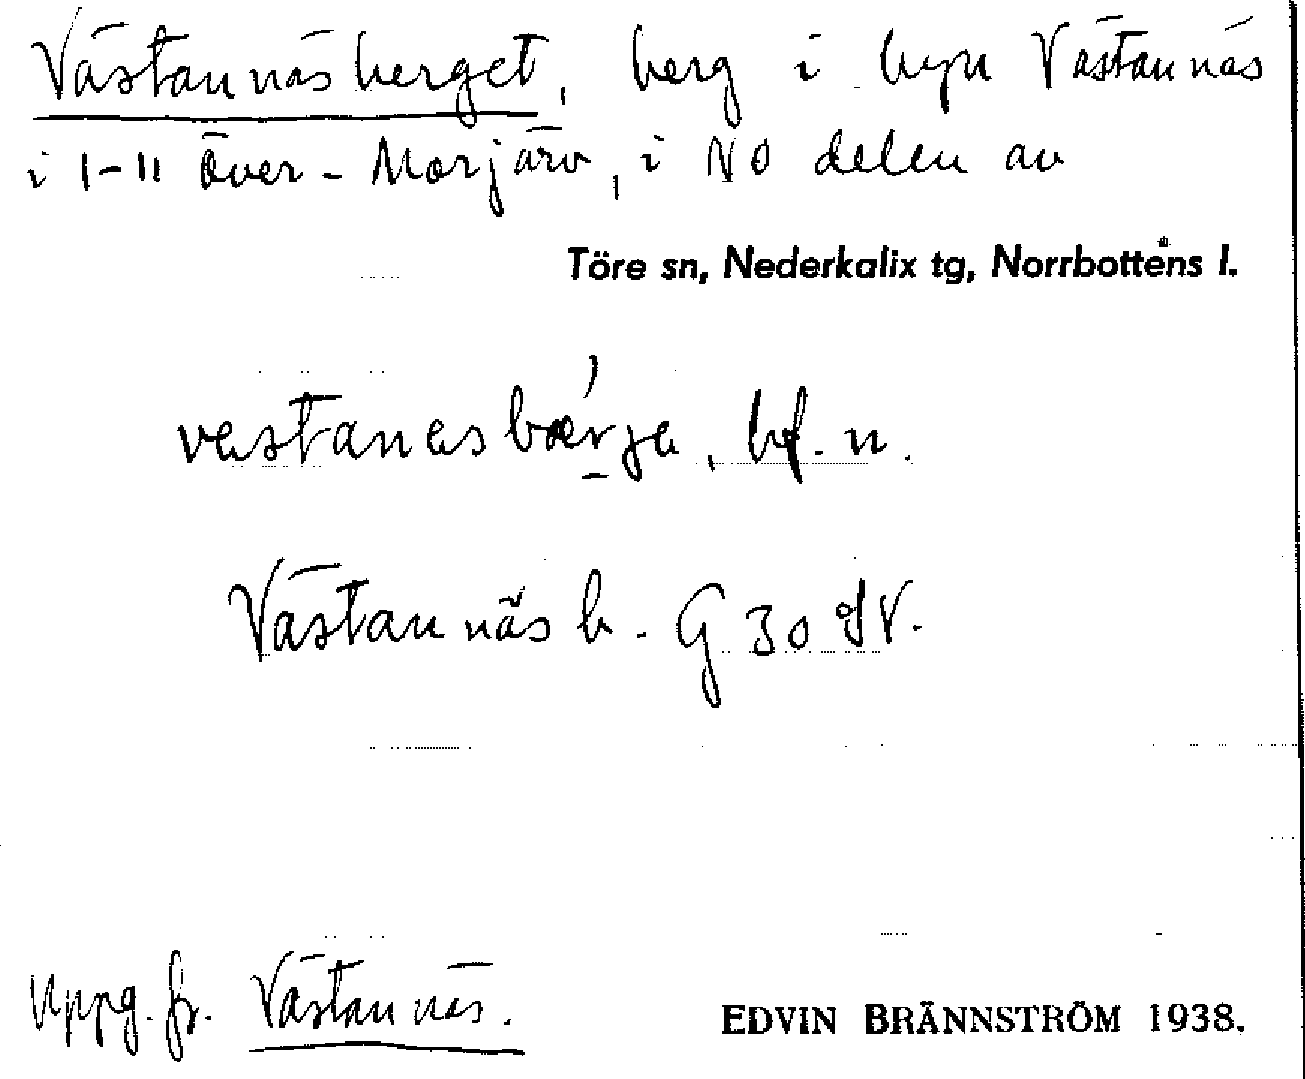 Västannäsberget, berg i byn Västannäs
i 1-11 Över-Morjärv, i NO delen av
Töre sn, Nederkalix tg, Norrbottens l.
vestanesbærje, bf. n.
Västannäs b. G 30 SV.
Uppg. fr. Västannäs.
EDVIN BRÄNNSTRÖM 1938.